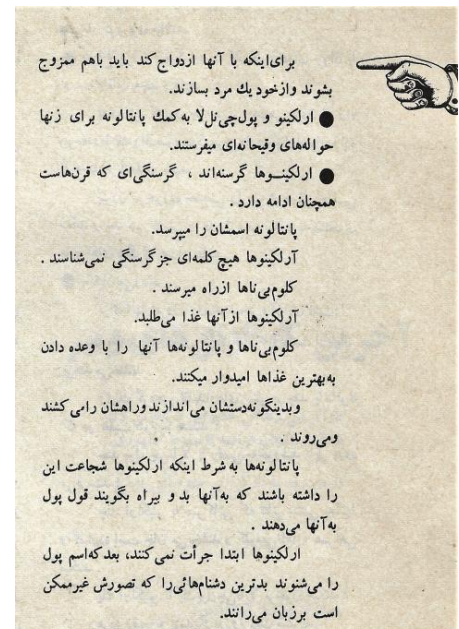 برای‌اینکه با آنها ازدواج‌کند باید باهم ممزوج
بشوند وازخودیك مرد بسازند.
● ارلکینو و پول‌چی‌نل‌لا به‌کمك پانتالونه برای زنها
حواله‌های وقیحانه‌ای میفرستند.
● ارلکینـوها گرسنه‌اند ، گرسنگی‌ای که قرن‌هاست
همچنان ادامه دارد .
پانتالونه اسمشان را میپرسد.
آرلکینوها هیچ‌کلمه‌ای جزگرسنگی نمی‌شناسند .
کلوم‌بی‌ناها ازراه میرسند .
آرلکینوها ازآنها غذا می‌طلبد.
کلوم‌بی‌ناها و پانتالونه‌ها آنها را با وعده دادن
به‌بهترین غذاها امیدوار میکنند.
وبدینگونه‌دستشان می‌اندازند وراهشان رامی‌کشند
ومی‌روند .
پانتالونه‌ها به‌شرط اینکه ارلکینوها شجاعت این
را داشته باشند که به‌آنها بد و بیراه بگویند قول پول
به‌آنها می‌دهند .
ارلکینوها ابتدا جرأت نمی‌کنند، بعدکه‌اسم پول
را می‌شنوند بدترین دشنام‌هائی‌را که تصورش غیرممکن
است برزبان می‌رانند.